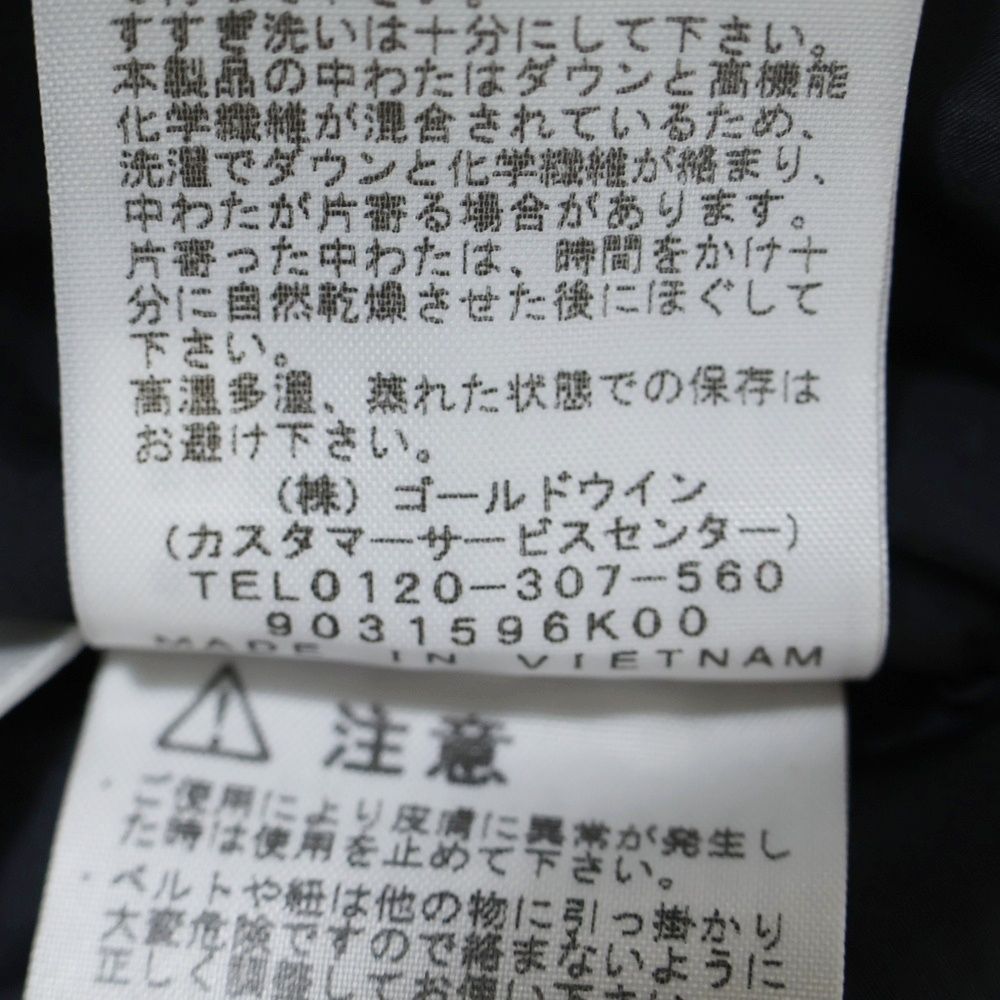 下さい。
すすぎ洗いは十分にして下さい。
本製品の中わたはダウンと高機能
化学繊維が混合されているため、
洗濯でダウンと化学繊維が絡まり、
中わたが片寄る場合があります。
片寄った中わたは、時間をかけ十
分に自然乾燥させた後にほぐして
下さい。
高温多湿、蒸れた状態での保存は
お避け下さい。
(株)ゴールドウイン
(カスタマーサービスセンター)
TEL0120-307-560
9031596K00
MADE IN VIETNAM
注意
・ご使用により皮膚に異常が発生し
た時は使用を止めて下さい。
・ベルトや紐は他の物に引っ掛かり
大変危険ですので絡まないように
正しく調整してお使い下さい